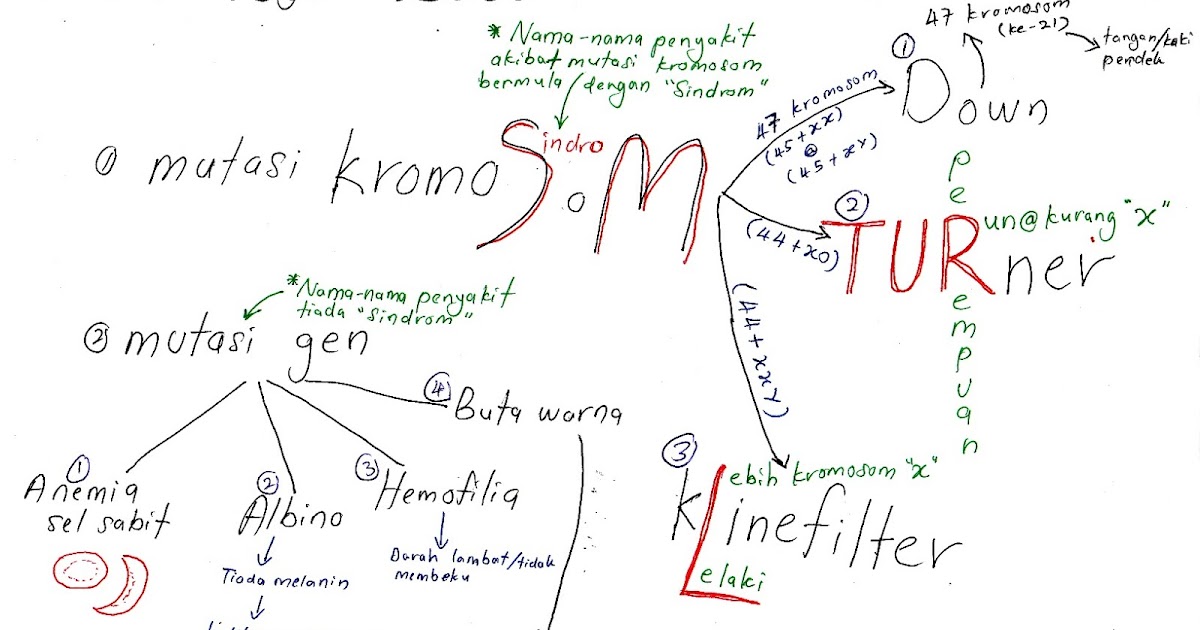 * Nama-nama penyakit
akibat mutasi kromosom
bermula/dengan "Sindrom"
47 kromosom
(ke-21)
tangan/kaki
pendek
① Down
47 kromosom
(45+XX)
@
(45+XY)
① mutasi kromoSoM
Sindro
(44+XO)
② TURner
un@kurang "X"
Perempuan
(44+XXY)
*Nama-nama penyakit
tiada "Sindrom"
② mutasi gen
① Anemia
sel sabit
② Albino
Tiada melanin
③ Hemofilia
Darah lambat/tidak
membeku
④ Buta warna
③ Klinefilter
ebih kromosom "X"
elaki